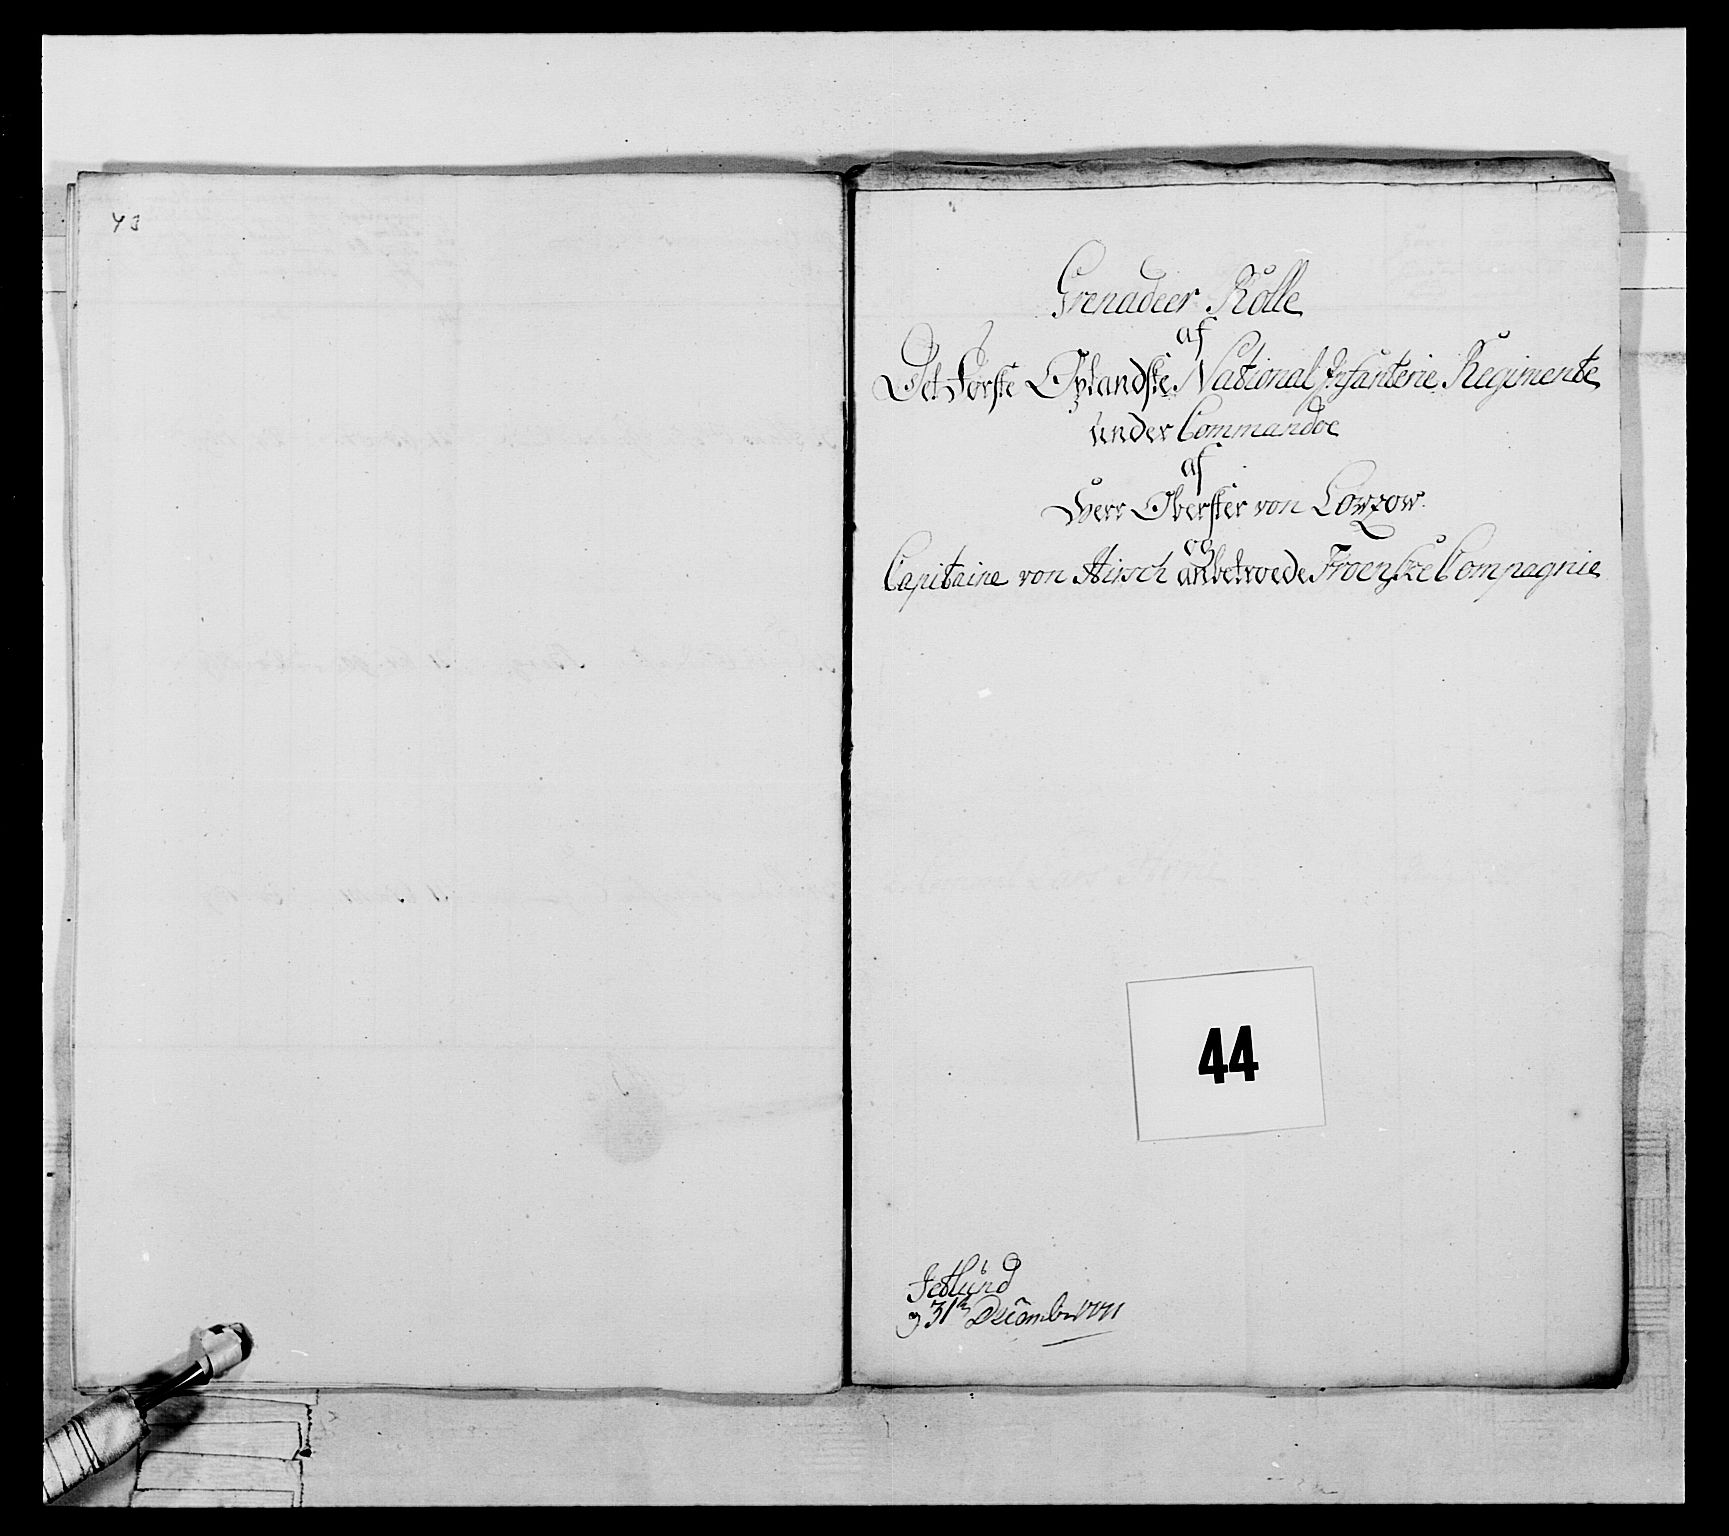 43
Grenadeer Rolle
af
Det Første Oplandske National Infanterie Regimente
under Commandoe
af
Herr Oberster von Lowzow
og
Capitaine von Hirsch anbetroede Froenske Compagnie
44
Jetlund
31th Decembr 1771